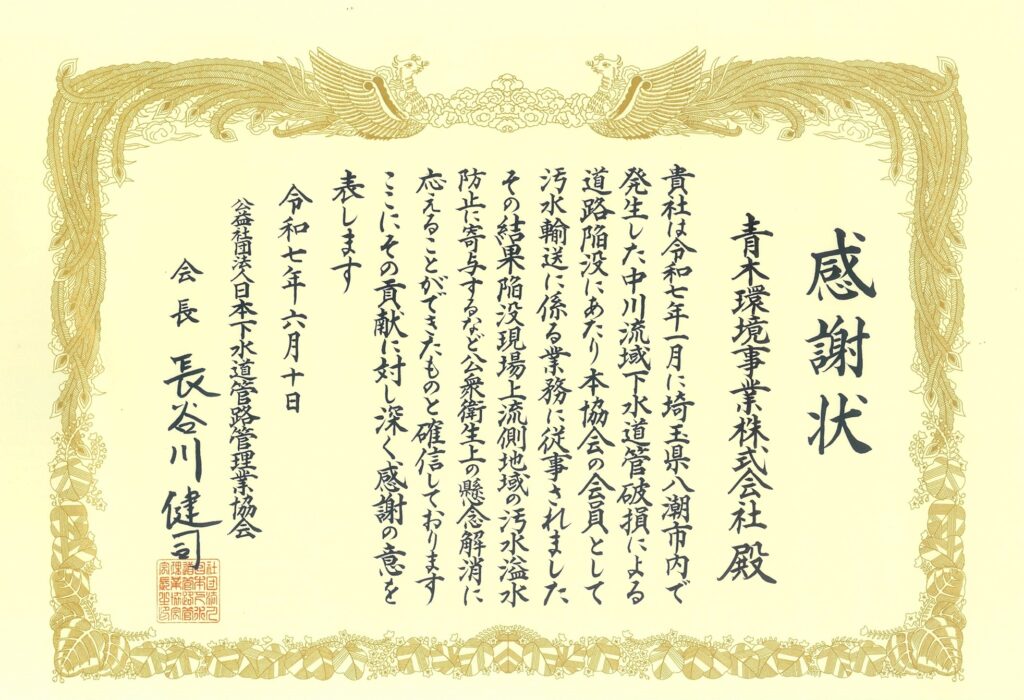 感謝状
青木環境事業株式会社 殿
貴社は令和七年一月に埼玉県八潮市内で
発生した中川流域下水道管破損による
道路陥没にあたり本協会の会員として
汚水輸送に係る業務に従事されました
その結果陥没現場上流側地域の汚水溢水
防止に寄与するなど公衆衛生上の懸念解消に
応えることができたものと確信しております
ここにその貢献に対し深く感謝の意を
表します
令和七年六月十日
公益社団法人日本下水道管路管理業協会
会長 長谷川健司